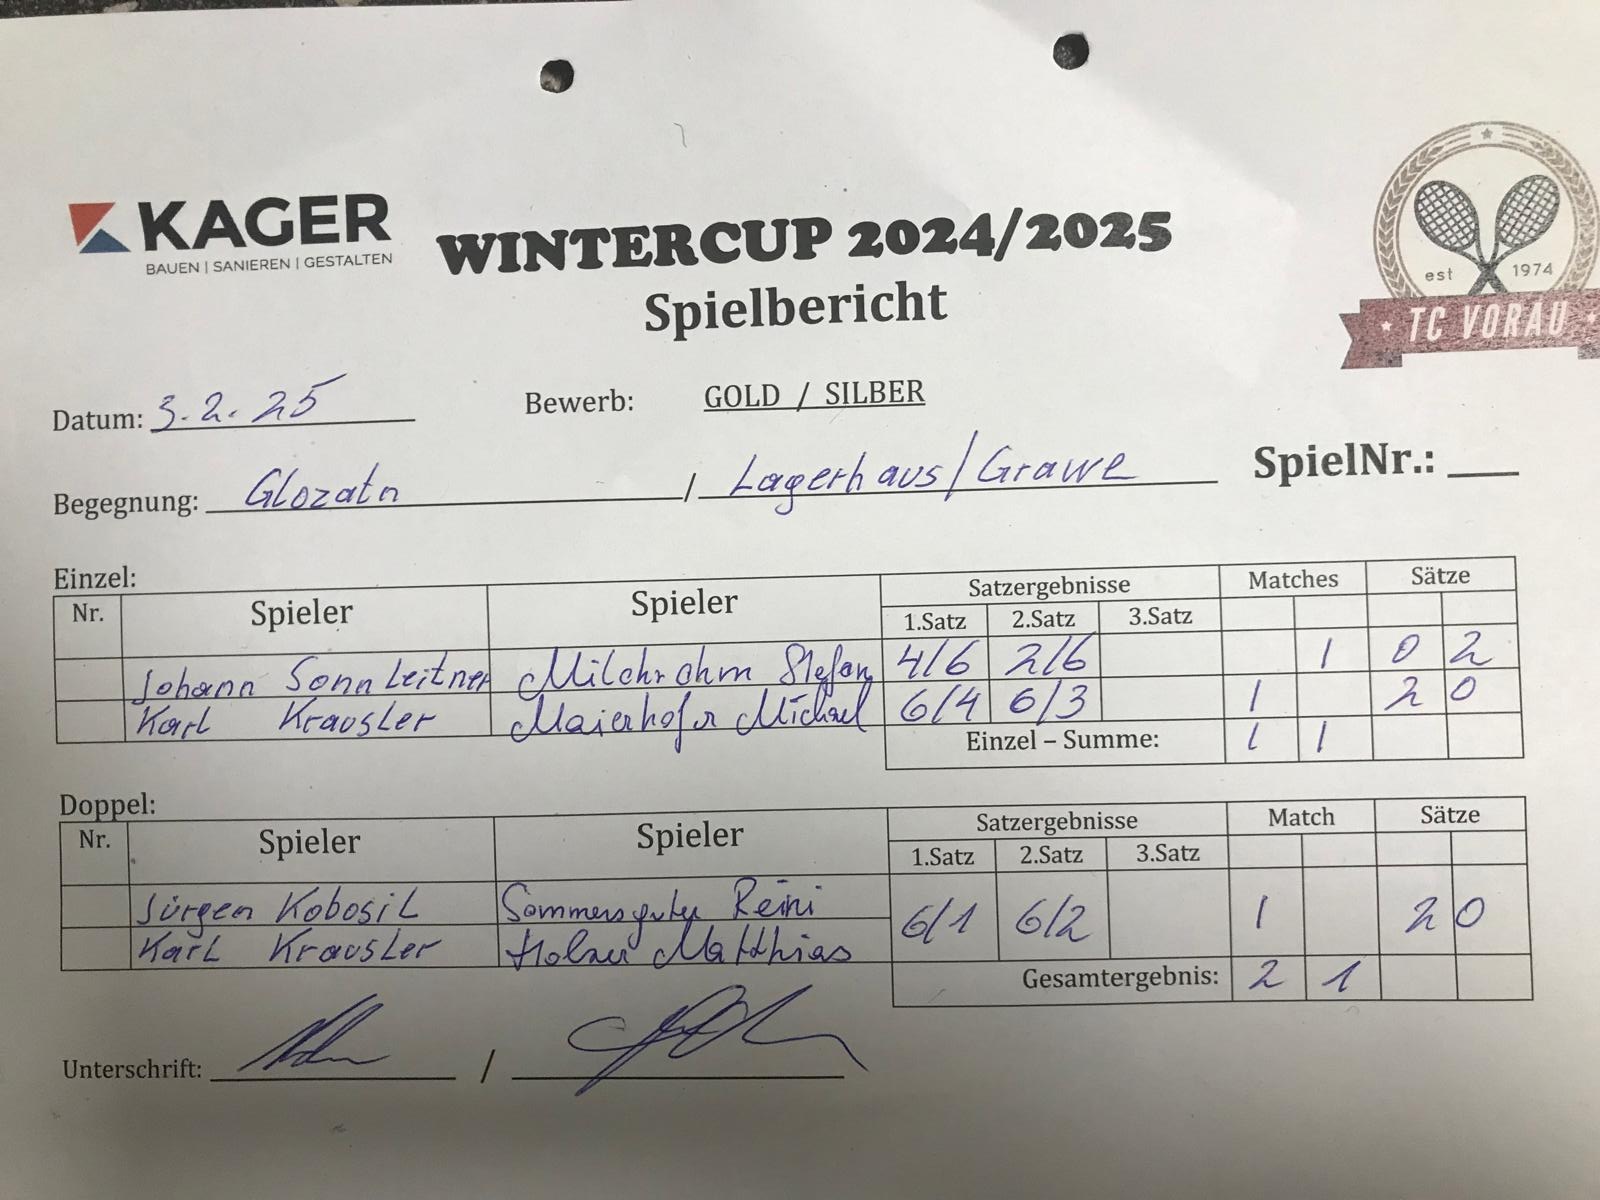 KAGER
BAUEN | SANIEREN | GESTALTEN
WINTERCUP 2024/2025
Spielbericht
est 1974
TC VORAU
Datum: 3.2.25 Bewerb: GOLD / SILBER
Begegnung: Glozatn / Lagerhaus/Grawe SpielNr.:
Einzel:
Nr. Spieler Spieler Satzergebnisse Matches Sätze
1.Satz 2.Satz 3.Satz
Johann Sonnleitner Milchrahm Stefan 4/6 2/6 1 0 2
Karl Krausler Maierhofer Michael 6/4 6/3 1 2 0
Einzel – Summe: 1 1
Doppel:
Nr. Spieler Spieler Satzergebnisse Match Sätze
1.Satz 2.Satz 3.Satz
Jürgen Kobosil Sommersguter Reini 6/1 6/2 1 2 0
Karl Krausler Matthias
Gesamtergebnis: 2 1
Unterschrift: /